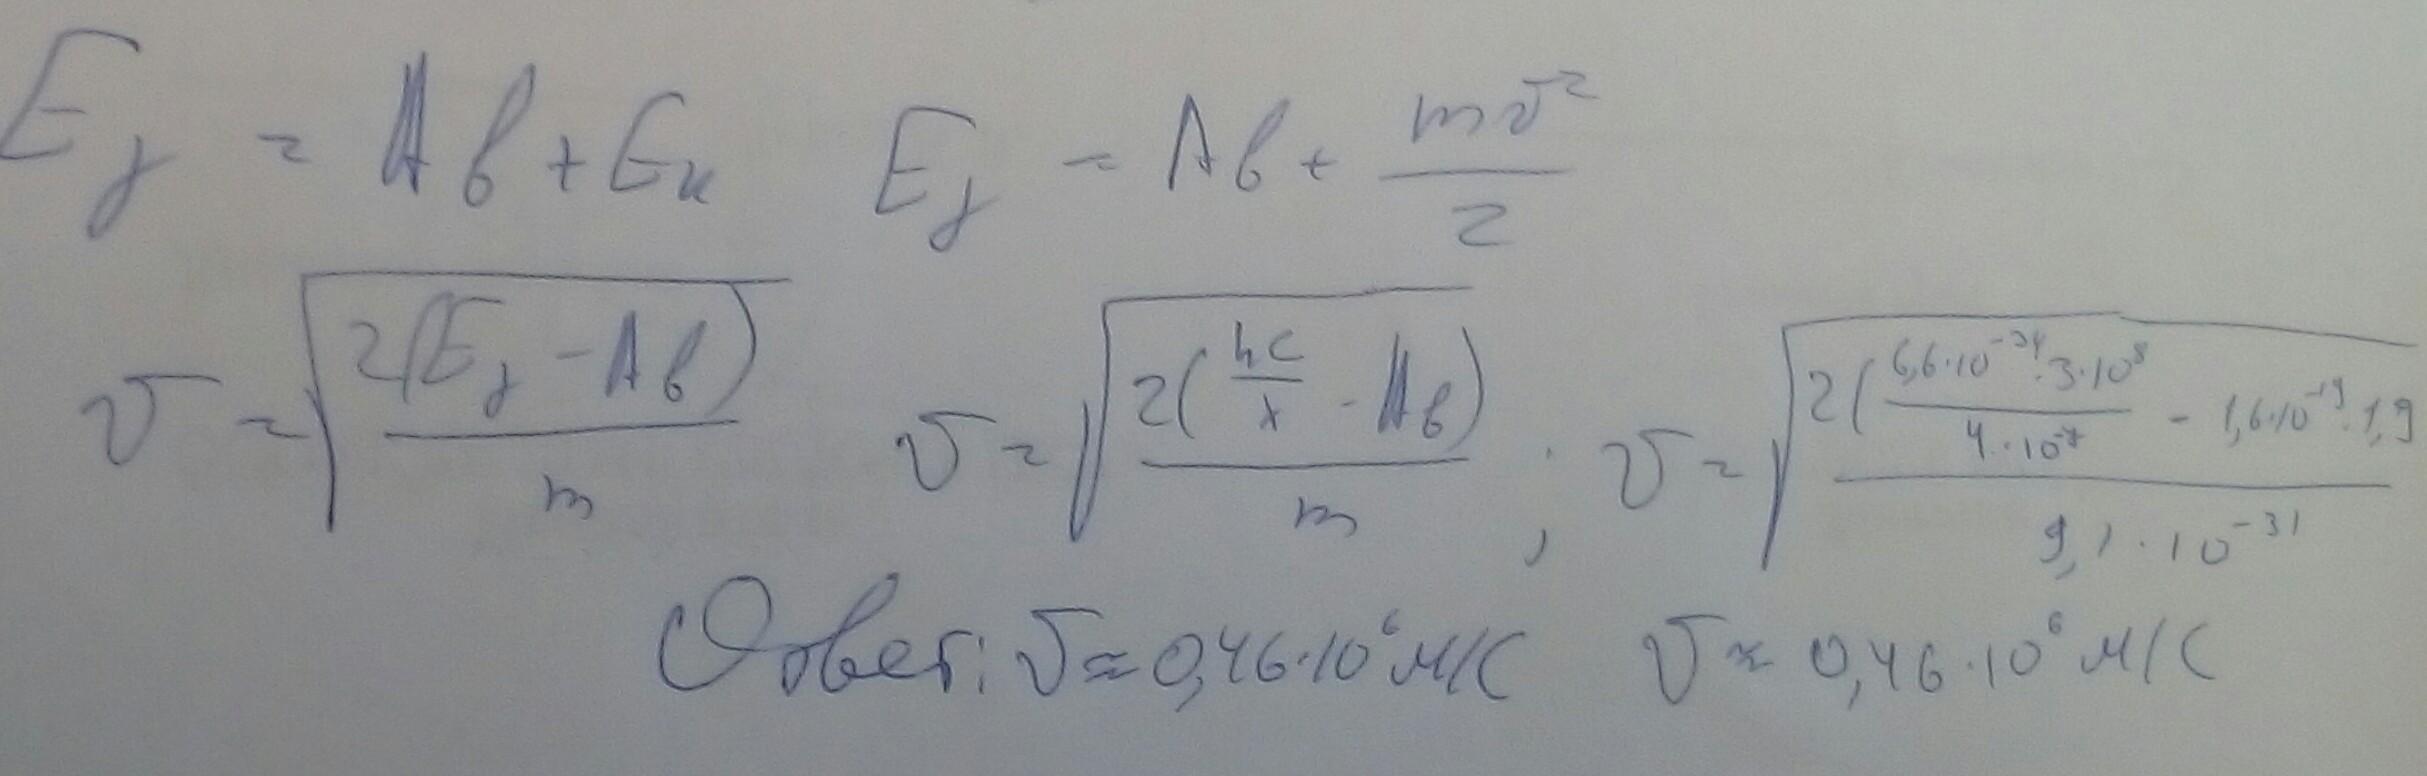 Eγ = Aв + Eк Eγ = Aв + mv²/2
v = √(2(Eγ - Aв)/m) v = √(2(hc/λ - Aв)/m) ; v = √(2((6,6·10⁻³⁴·3·10⁸)/(4·10⁻⁷) - 1,6·10⁻¹⁹·1,9)/(9,1·10⁻³¹))
Ответ: v ≈ 0,46·10⁶ м/с v ≈ 0,46·10⁶ м/с